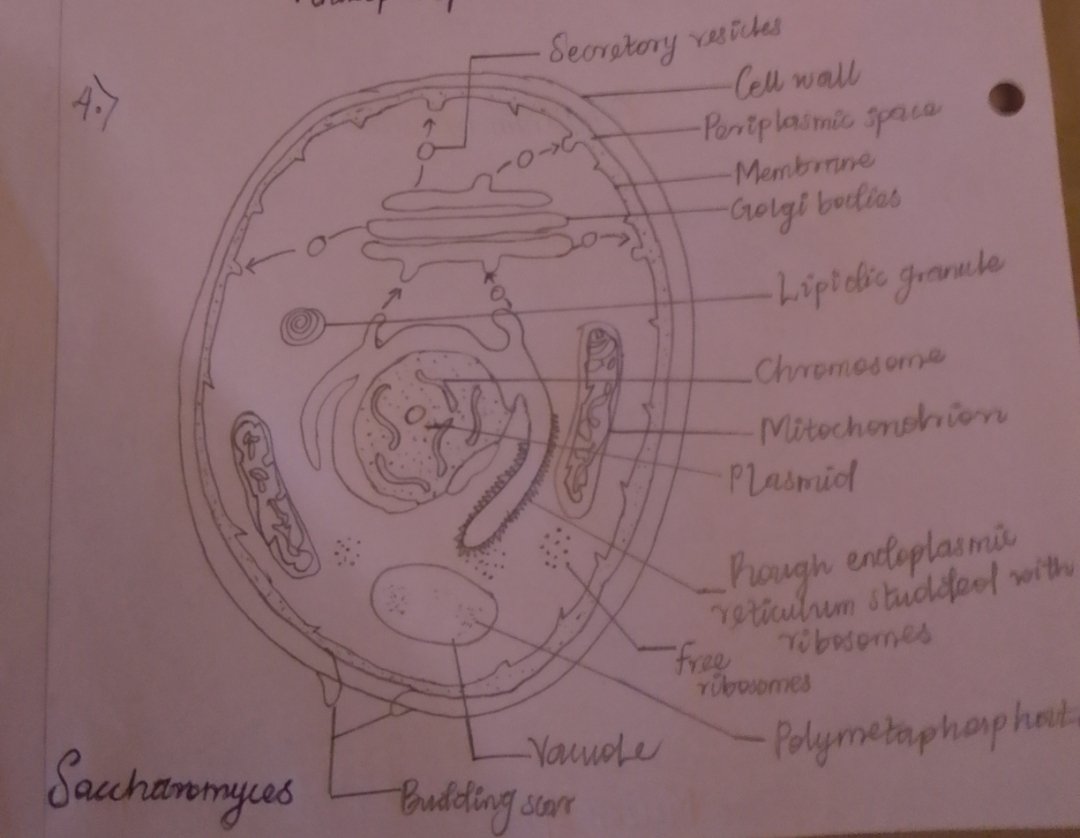 4.)
Secretory vesicles
Cell wall
Periplasmic space
Membrane
Golgi bodies
Lipidic granule
Chromosome
Mitochondrion
Plasmid
Rough endoplasmic
reticulum studded with
ribosomes
free
ribosomes
Polymetaphosphat
Vacuole
Budding scar
Saccharomyces